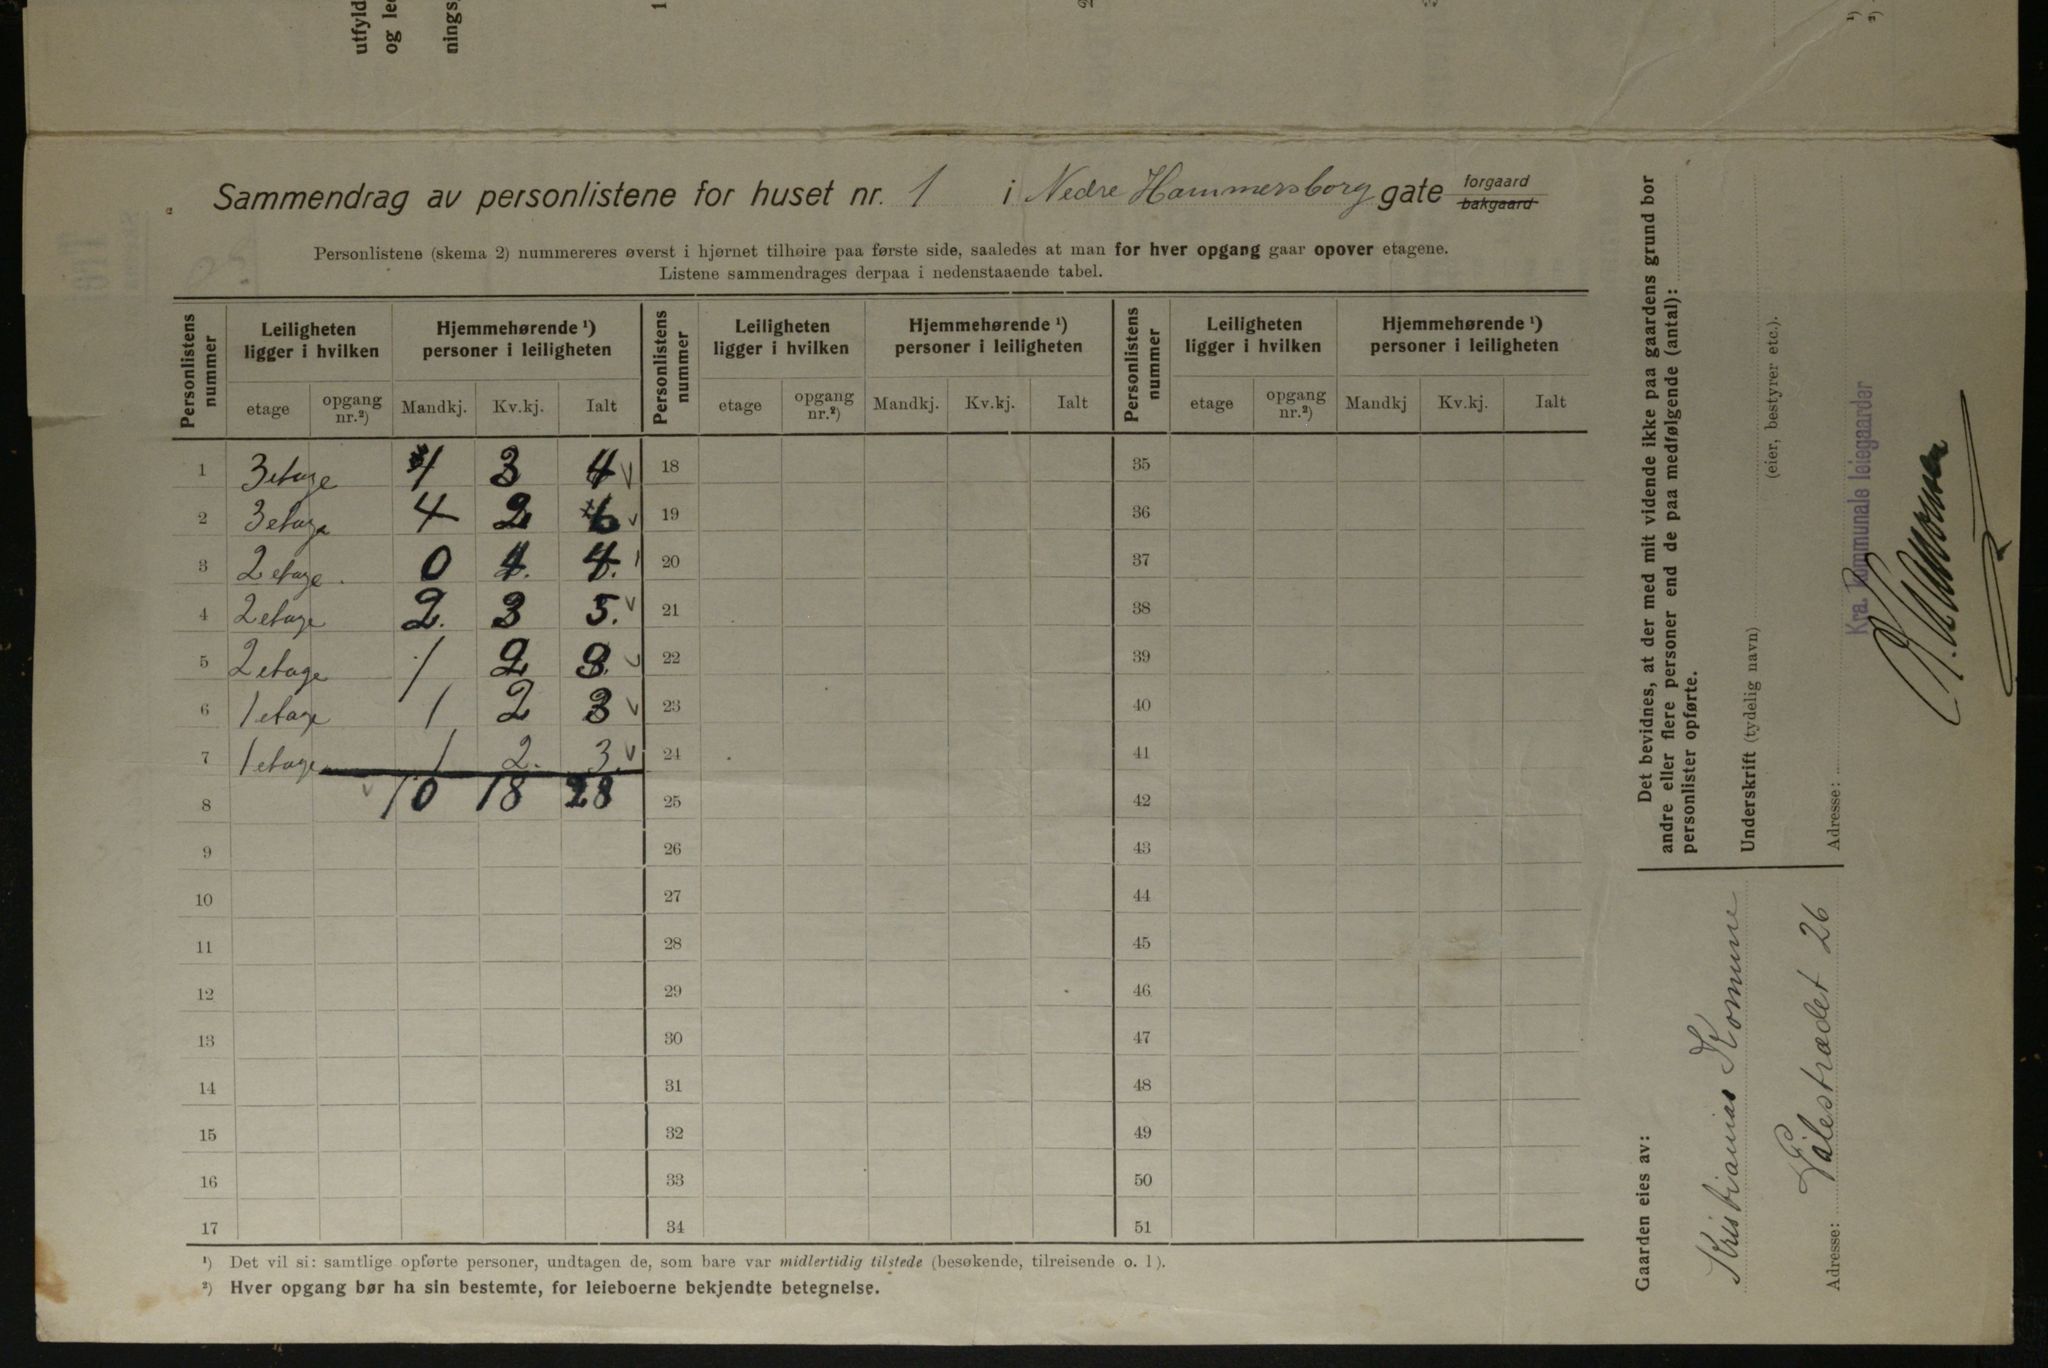 utfyld
og le
nings
1
2
3
¹)
²)
Sammendrag av personlistene for huset nr. 1 i Nedre Hammersborg gate forgaard
bakgaard
Personlistene (skema 2) nummereres øverst i hjørnet tilhøire paa første side, saaledes at man for hver opgang gaar opover etagene.
Listene sammendrages derpaa i nedenstaaende tabel.
Personlistens nummer | Leiligheten ligger i hvilken | Hjemmehørende ¹) personer i leiligheten | Personlistens nummer | Leiligheten ligger i hvilken | Hjemmehørende ¹) personer i leiligheten | Personlistens nummer | Leiligheten ligger i hvilken | Hjemmehørende ¹) personer i leiligheten
etage | opgang nr.²) | Mandkj. | Kv.kj. | Ialt | etage | opgang nr.²) | Mandkj. | Kv.kj. | Ialt | etage | opgang nr.²) | Mandkj | Kv.kj. | Ialt
1 3 etage 1 3 4 18 35
2 3 etage 4 2 6 19 36
3 2 etage. 0 4. 4. 20 37
4 2 etage 2. 3 5. 21 38
5 2 etage 1 2 3. 22 39
6 1 etage 1 2 3 23 40
7 1 etage 1 2. 3. 24 41
8 10 18 28 25 42
9 26 43
10 27 44
11 28 45
12 29 46
13 30 47
14 31 48
15 32 49
16 33 50
17 34 51
¹) Det vil si: samtlige opførte personer, undtagen de, som bare var midlertidig tilstede (besøkende, tilreisende o. l).
²) Hver opgang bør ha sin bestemte, for leieboerne bekjendte betegnelse.
Det bevidnes, at der med mit vidende ikke paa gaardens grund bor
andre eller flere personer end de paa medfølgende (antal):
personlister opførte.
Underskrift (tydelig navn)
(eier, bestyrer etc.).
Adresse:
Kra. Kommunale leiegaarder
Gaarden eies av:
Kristianias Komune
Adresse: Pilestrædet 26